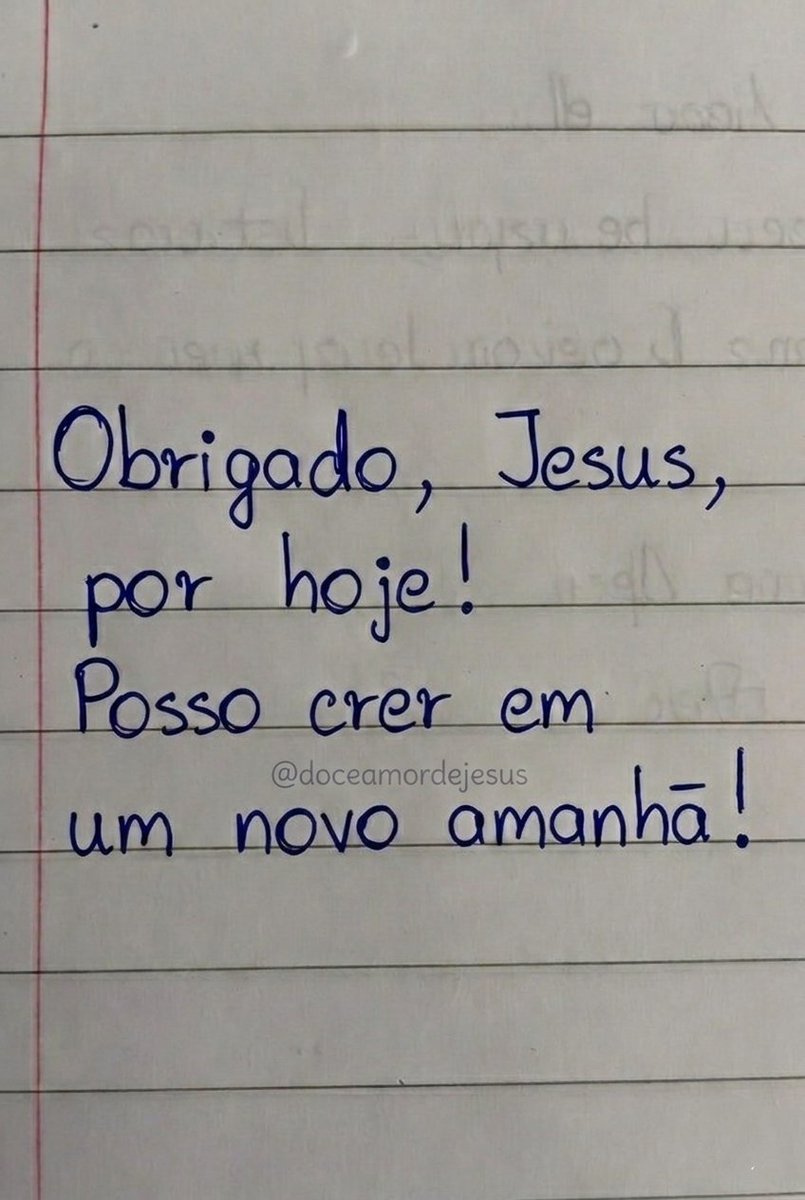 Obrigado, Jesus,
por hoje!
Posso crer em
@doceamordejesus
um novo amanhã!